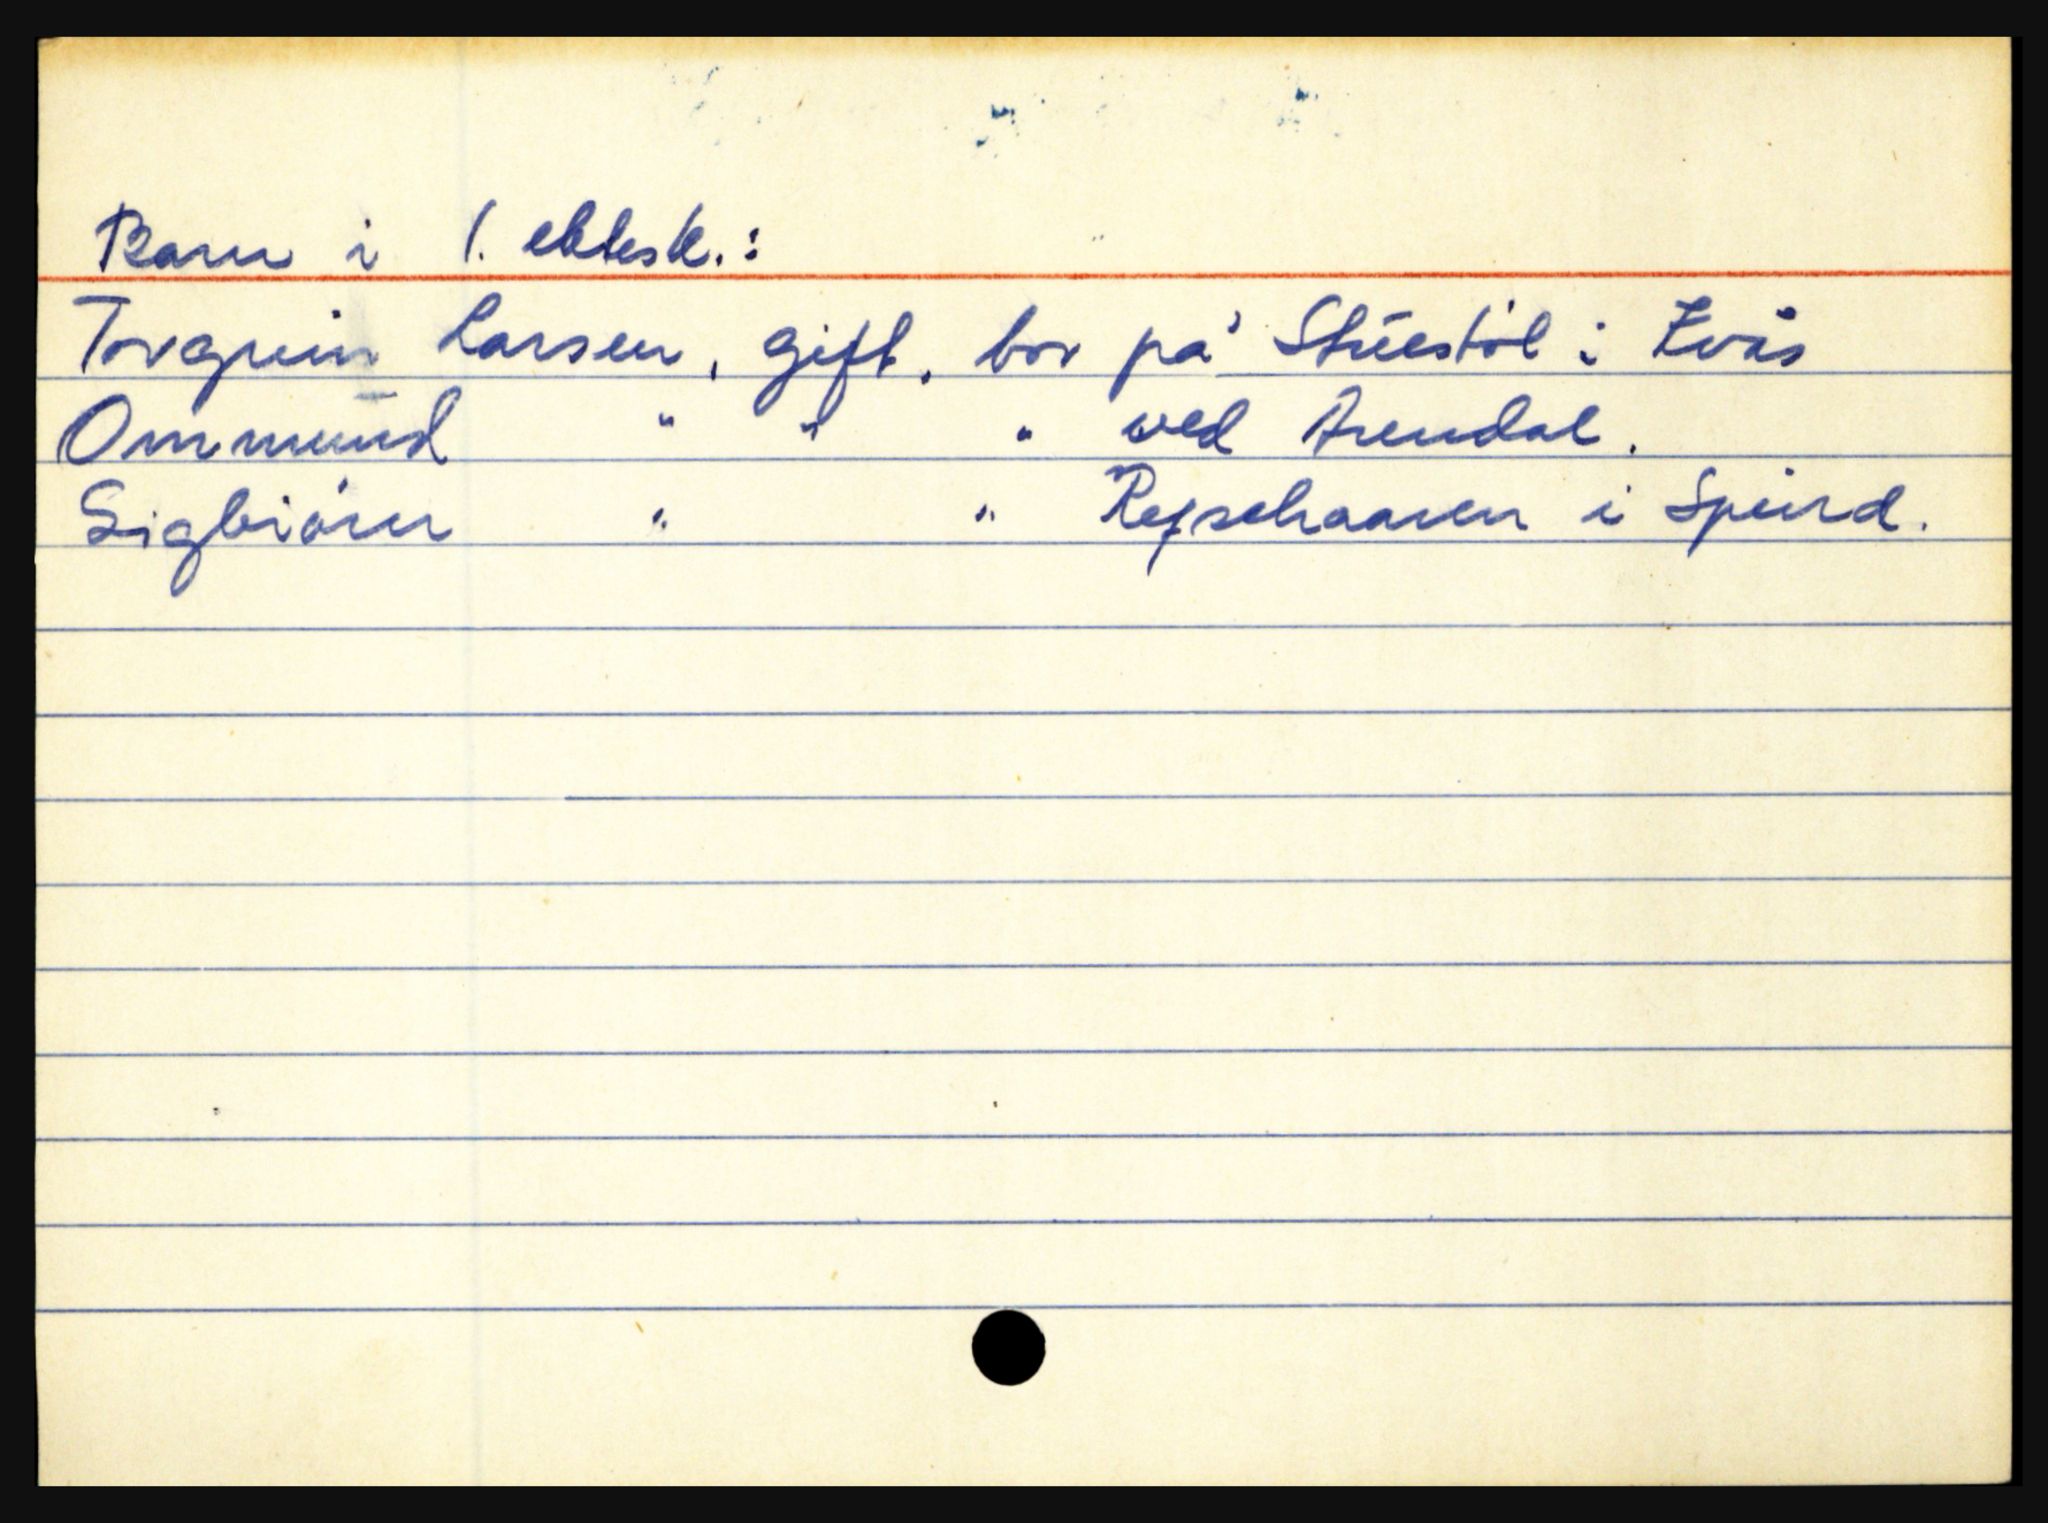 Barn i 1. ektesk.:
Torgrim Larsen, gift, bor på Stuestøl i Kvås
Ommund " " " ved Arendal.
Sigbiørn " " Refsehaaven i Spind.